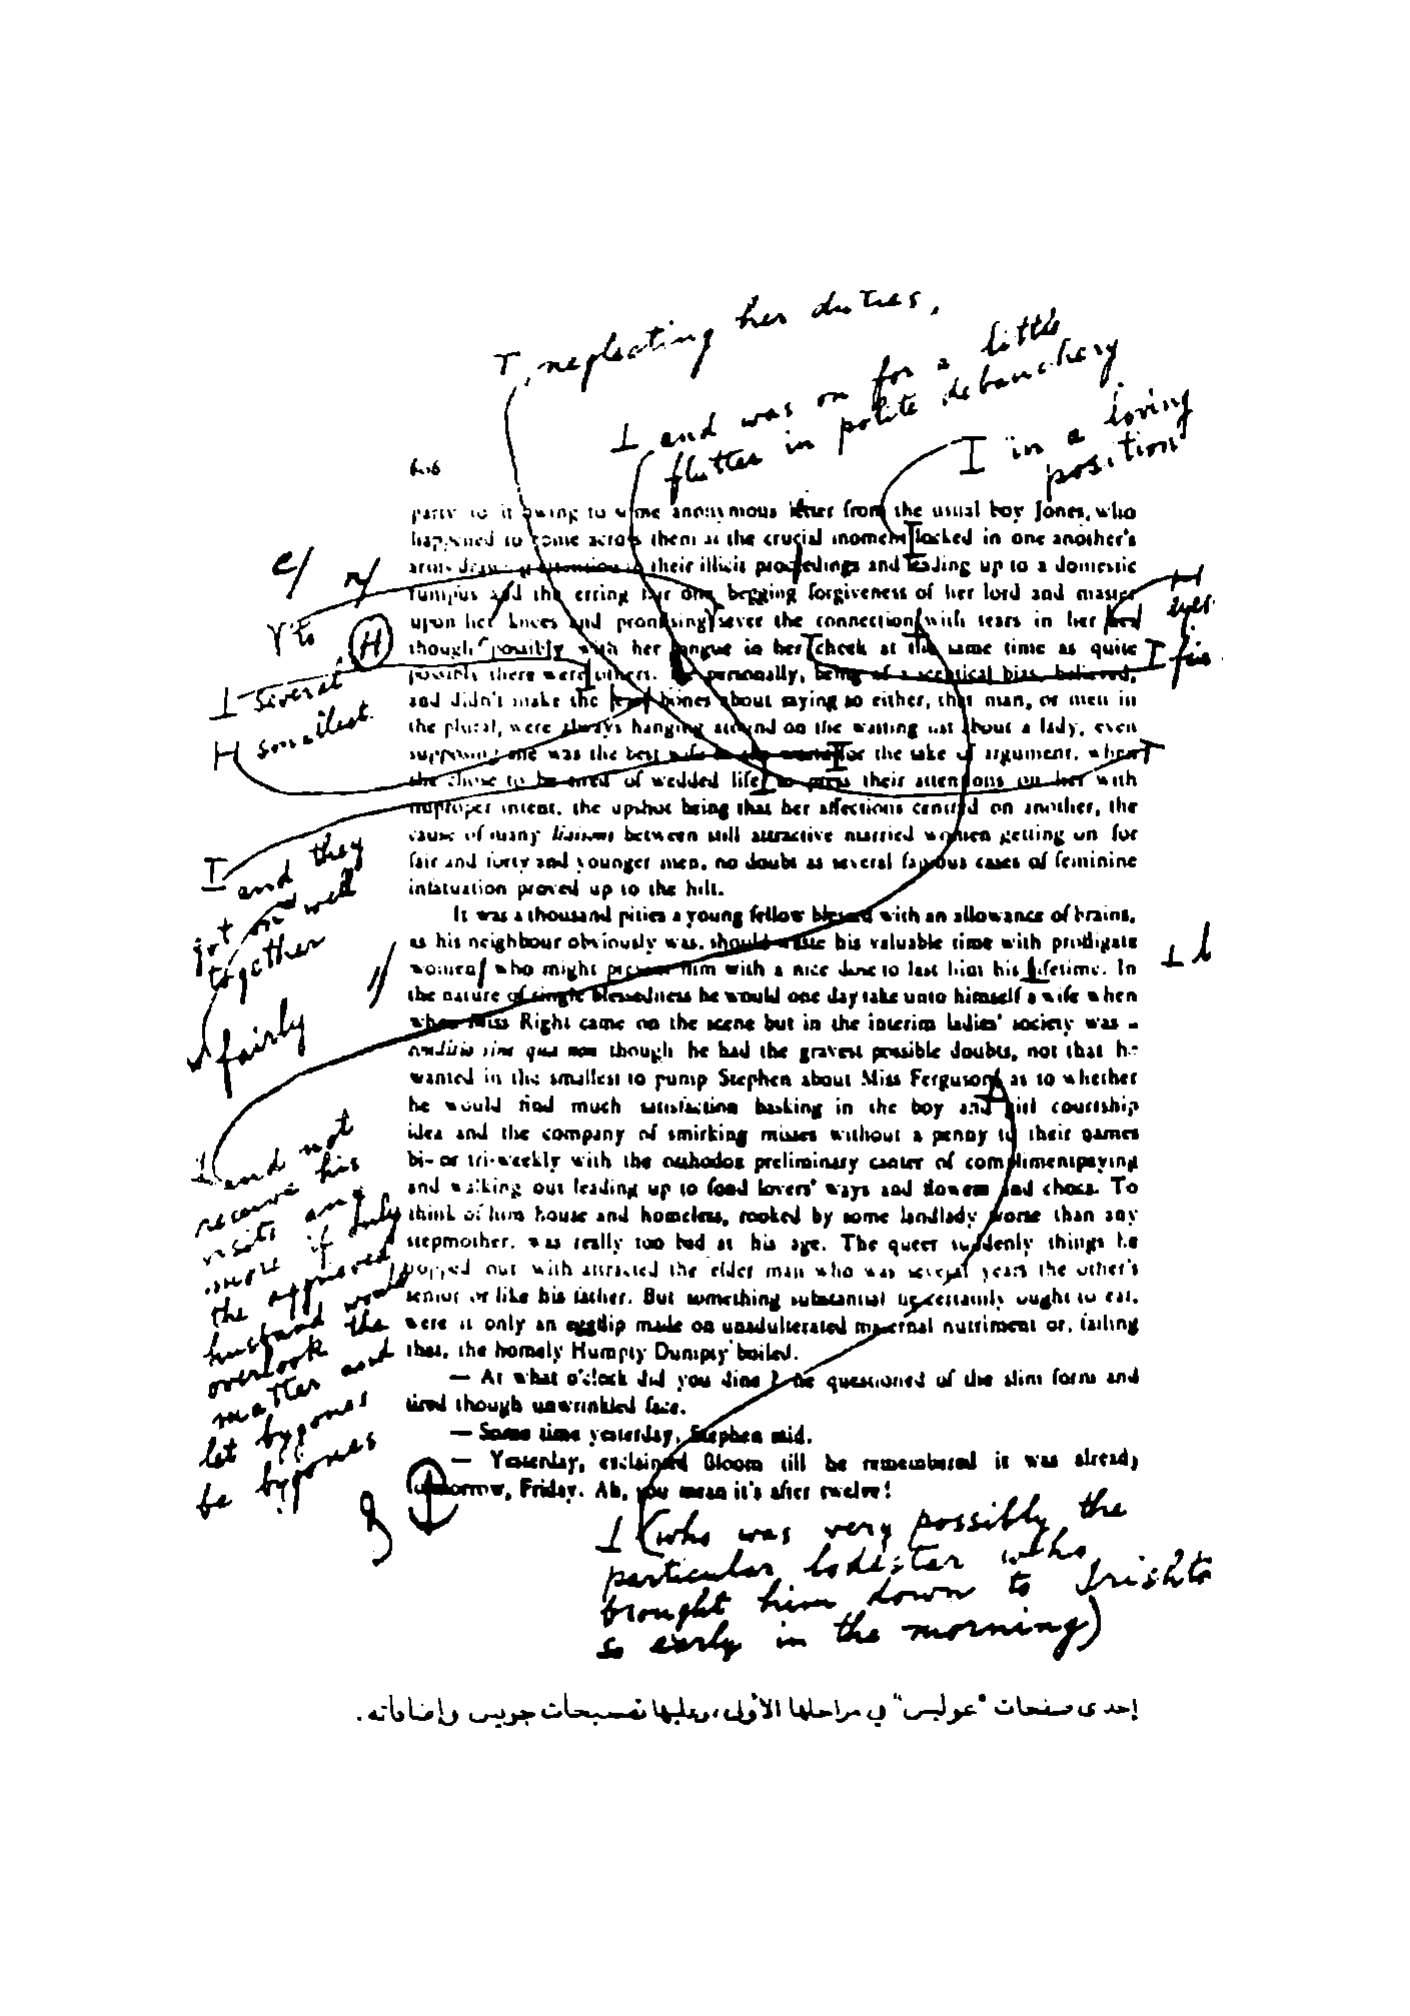 , neglecting her duties,
and was on for a little
flutter in polite debauchery
in a loving
position
606
party to it owing to some anonymous letter from the usual boy Jones, who
happened to come across them at the crucial moment locked in one another's
arms drawing attention to their illicit proceedings and leading up to a domestic
rumpus and the erring fair one begging forgiveness of her lord and master
upon her knees and promising sever the connection with tears in her
though possibly with her tongue in her cheek at the same time as quite
possibly there were others. He personally, being of a sceptical bias, believed,
and didn't make the least bones about saying so either, that man, or men in
the plural, were always hanging around on the waiting list about a lady, even
supposing she was the best wife in the world for the sake of argument, when
she chose to be tired of wedded life to press their attentions on her with
improper intent, the upshot being that her affections centred on another, the
cause of many liaisons between still attractive married women getting on for
fair and forty and younger men, no doubt as several famous cases of feminine
infatuation proved up to the hilt.
It was a thousand pities a young fellow blessed with an allowance of brains,
as his neighbour obviously was, should waste his valuable time with profligate
women who might present him with a nice dose to last him his lifetime. In
the nature of single blessedness he would one day take unto himself a wife when
when Miss Right came on the scene but in the interim ladies' society was a
conditio sine qua non though he had the gravest possible doubts, not that he
wanted in the smallest to pump Stephen about Miss Ferguson as to whether
he would find much satisfaction basking in the boy and girl courtship
idea and the company of smirking misses without a penny to their names
bi- or tri-weekly with the orthodox preliminary canter of complimentpaying
and walking out leading up to fond lovers' ways and flowers and chocs. To
think of him house and homeless, rooked by some landlady worse than any
stepmother, was really too bad at his age. The queer suddenly things he
popped out with attracted the elder man who was several years the other's
senior or like his father. But something substantial he certainly ought to eat,
were it only an eggflip made on unadulterated maternal nutriment or, failing
that, the homely Humpty Dumpty boiled.
— At what o'clock did you dine? he questioned of the slim form and
tired though unwrinkled face.
— Some time yesterday, Stephen said.
— Yesterday, exclaimed Bloom till he remembered it was already
tomorrow, Friday. Ah, you mean it's after twelve!
e/
n/
to
H
several
smallest
eyes
and they
got on well
together
fairly
l
and not
receive his
visits any
more if only
the aggrieved
husband would
overlook the
matter and
let bygones
be bygones
(who was very possibly the
particular lodestar who
brought him down to Irishto
so early in the morning)
إحدى صفحات "عوليس" في مراحلها الأولى، وعليها تصحيحات جويس وإضافاته.